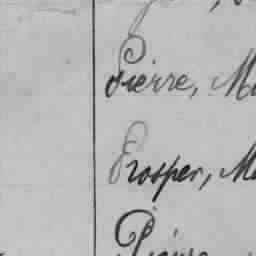 Pierre, M
Prosper, M
Pierre